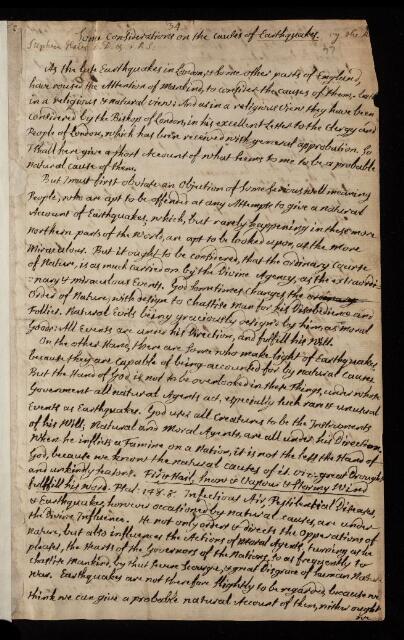 34
Some Considerations on the Causes of Earthquakes.
Stephen Hales
As the late Earthquakes in London, & some other parts of England,
have roused the Attention of Mankind, to consider the Causes of them, both
in a religious & natural view: And as in a religious View they have been
considered by the Bishop of London, in his excellent Letter to the Clergy and
People of London, which has been received with general approbation. So
I shall here give a short Account of what seems to me to be a probable
Natural cause of them.
But I must first obviate an Objection of some serious well meaning
People, who are apt to be offended at any Attempts to give a natural
Account of Earthquakes, which, but rarely happening in these more
Northern parts of the World, are apt to be looked upon, as the more
Miraculous. But it ought to be considered, that the ordinary Course
of Nature, is as much carried on by the Divine Agency, as the extraordi
-nary & miraculous Events. God sometimes changes the ordinary
Order of Nature, with design to Chastise Man for his Disobedience and
Follies. Natural Evils being graciously design'd by him as moral
Goods: All Events are under his Direction, and fulfill his Will.
On the other Hand, there are some who make light of Earthquakes,
because they are capable of being accounted for by natural Causes.
But the Hand of God is not to be overlooked in these Things, under whose
Government all natural Agents act, especially such rare & unusual
Events as Earthquakes. God uses all Creatures to be the Instruments
of his Will; Natural and Moral Agents, are all under his Direction.
When he inflicts a Famine on a Nation, it is not the less the Hand of
God, because we know the natural causes of it. viz. great Drought
and unkindly season. Fire & Hail, Snow & Vapour & Stormy Wind
fulfill his word. Psal. 148.8. Infectious Air Pestilential Diseases,
& Earthquakes, however occasioned by natural causes, are under
the Divine Influence. He not only orders & directs the Operations of
Nature, but also influences the Actions of Moral Agents, turning as he
pleases, the Hearts of the Governors of the Nations, so as frequently to
chastise Mankind, by that severe Scourge, & great Disgrace of human Nature
War. Earthquakes are not therefore slightly to be regarded, because we
think we can give a probable natural Account of them, neither ought